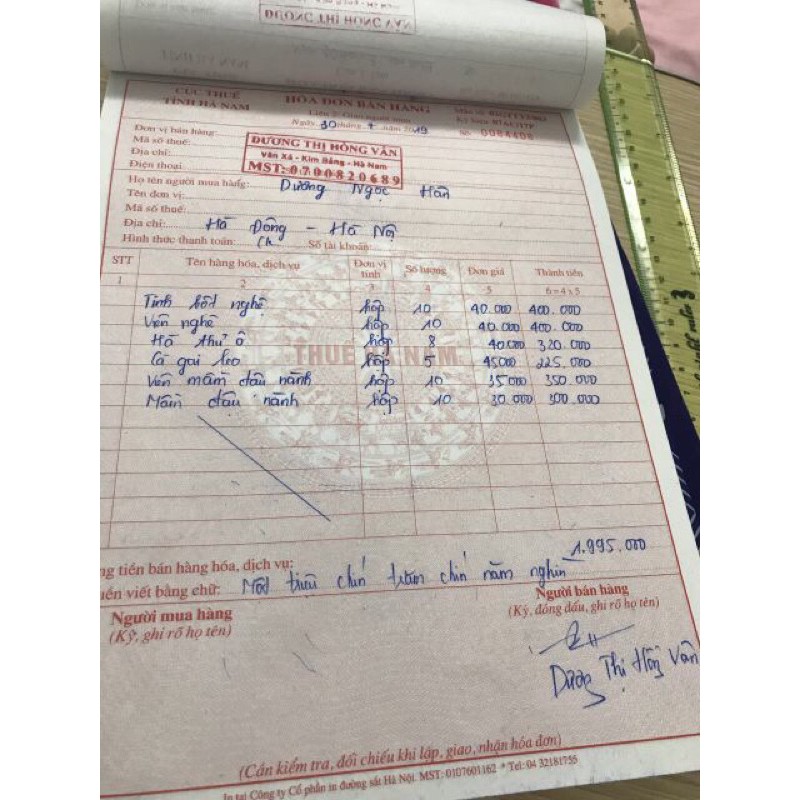 DƯƠNG THỊ HỒNG VÂN
CỤC THUẾ
TỈNH HÀ NAM
HÓA ĐƠN BÁN HÀNG
Liên 2: Giao người mua
Ngày 30 tháng 7 năm 2019
Nº 0084408
Đơn vị bán hàng:
Mã số thuế:
Địa chỉ:
Điện thoại:
DƯƠNG THỊ HỒNG VÂN
Văn Xá - Kim Bảng - Hà Nam
MST: 0700820689
Họ tên người mua hàng: Dương Ngọc Hân
Tên đơn vị:
Mã số thuế:
Địa chỉ: Hà Đông - Hà Nội
Hình thức thanh toán: Số tài khoản:
STT Tên hàng hóa, dịch vụ Đơn vị tính Số lượng Đơn giá Thành tiền
1 2 3 4 5 6=4x5
Tinh bột nghệ hộp 10 40.000 400.000
Viên nghệ hộp 10 40.000 400.000
Hà thủ ô hộp 8 40000 320.000
Cà gai leo hộp 5 45000 225.000
Viên mầm đậu nành hộp 10 35000 350.000
Mầm đậu nành hộp 10 30.000 300.000
THUẾ HÀ NAM
ng tiền bán hàng hóa, dịch vụ: 1.995.000
iền viết bằng chữ: Một triệu chín trăm chín năm nghìn
Người mua hàng Người bán hàng
(Ký, ghi rõ họ tên) (Ký, đóng dấu, ghi rõ họ tên)
Dương Thị Hồng Vân
(Cần kiểm tra, đối chiếu khi lập, giao, nhận hóa đơn)
In tại Công ty Cổ phần in đường sắt Hà Nội. MST: 0107601162 * Tel: 04 32181755